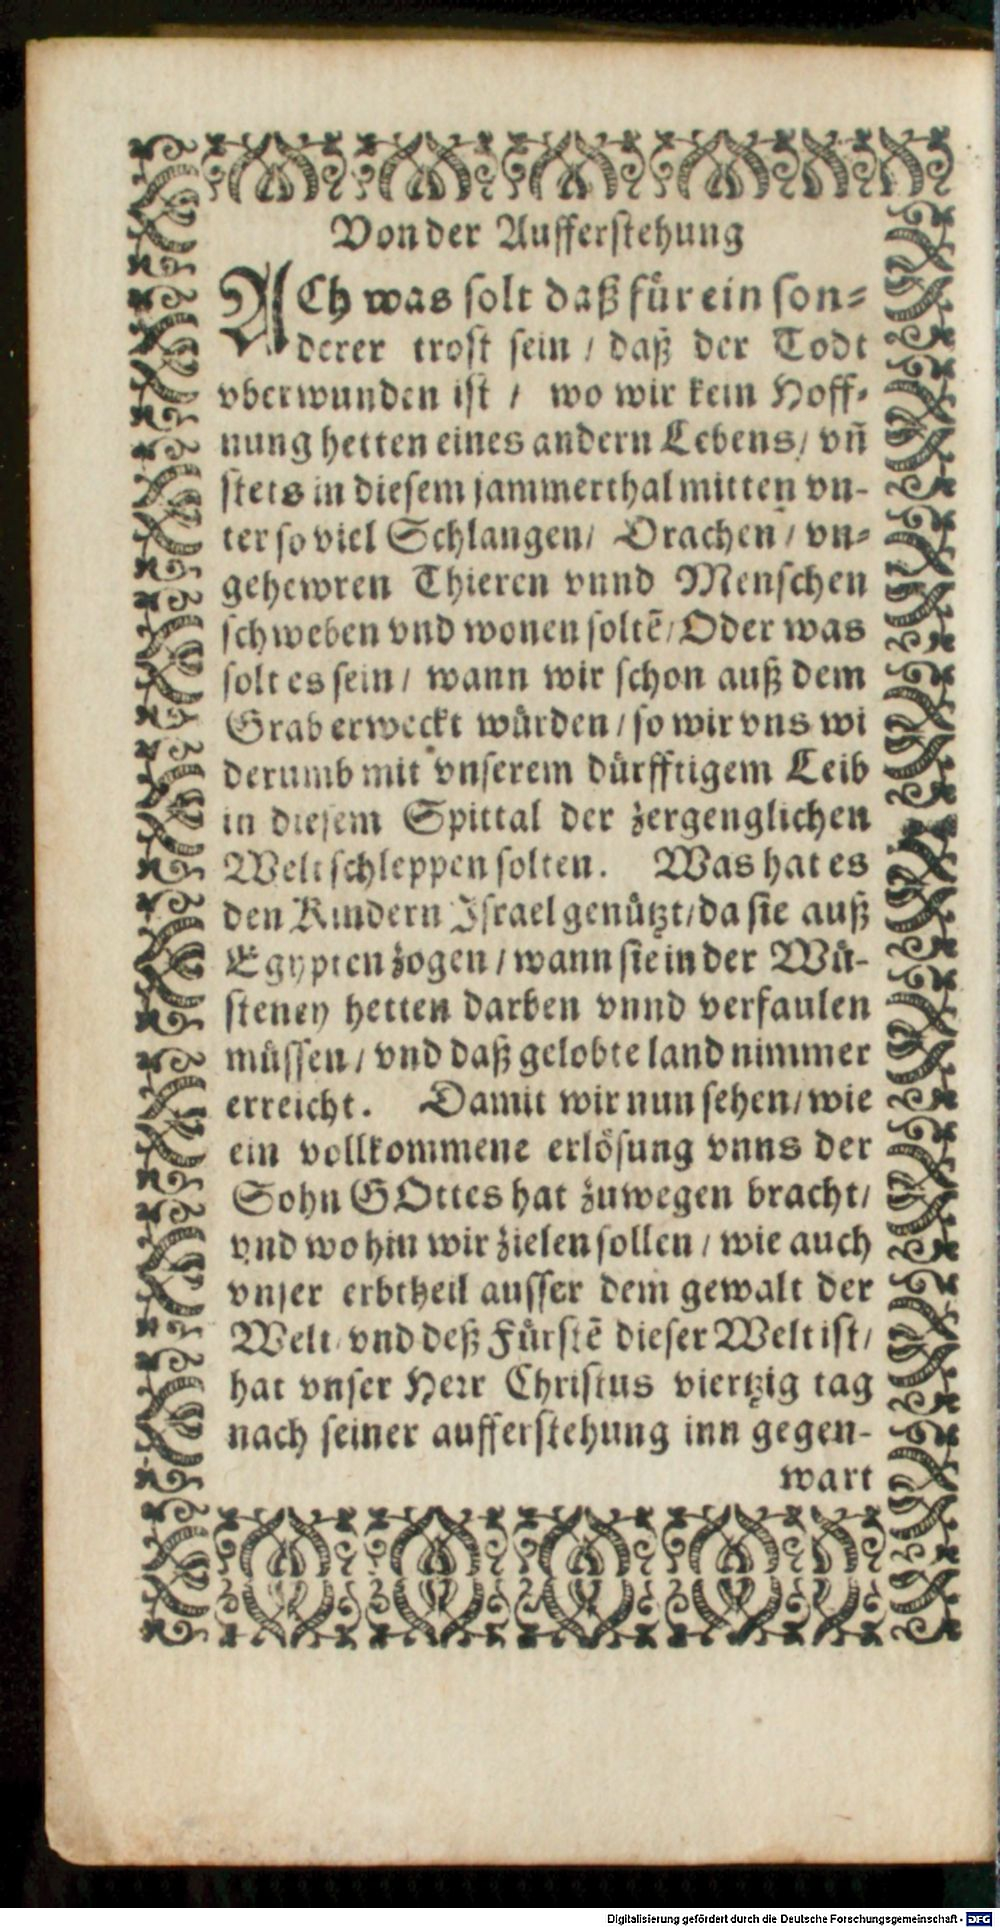 Von der Aufferstehung
ACh was solt daß für ein son⸗
derer trost sein / daß der Todt
vberwunden ist / wo wir kein Hoff⸗
nung hetten eines andern Lebens / vñ
stets in diesem jammerthal mitten vn-
ter so viel Schlangen / Drachen / vn⸗
gehewren Thieren vnnd Menschen
schweben vnd wonen soltẽ / Oder was
solt es sein / wann wir schon auß dem
Grab erweckt würden / so wir vns wi
derumb mit vnserem dürfftigem Leib
in diesem Spittal der zergenglichen
Welt schleppen solten. Was hat es
den Kindern Israel genützt / da sie auß
Egypten zogen / wann sie in der Wü-
steney hetten darben vnnd verfaulen
müssen / vnd daß gelobte land nimmer
erreicht. Damit wir nun sehen / wie
ein vollkommene erlösung vnns der
Sohn GOttes hat zuwegen bracht /
vnd wo hin wir zielen sollen / wie auch
vnser erbtheil ausser dem gewalt der
Welt / vnd deß Fürstẽ dieser Welt ist /
hat vnser Herr Christus viertzig tag
nach seiner aufferstehung inn gegen-
wart
Digitalisierung gefördert durch die Deutsche Forschungsgemeinschaft - DFG